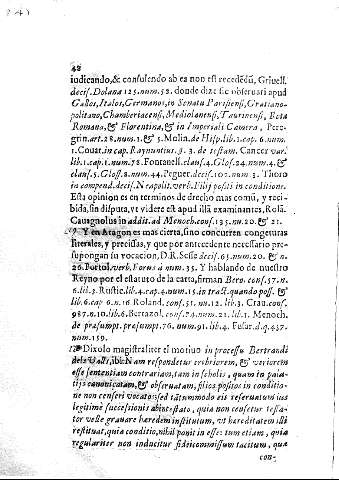 42
iudicando, & consulendo ab ea non est recedēdū, Grivell.
decis. Dolana 125. num. 52. donde dize sic observari apud
Gallos, Italos, Germanos, in Senatu Parisiensi, Gratiano-
politano, Chamberiacensi, Mediolanensi, Taurinensi, Rota
Romana, & Florentina, & in Imperiali Camera, Pere-
grin. art. 28. num. 1. & 5. Molin. de Hisp. lib. 1. cap. 6. num.
1. Couar. in cap. Raynuntius §. 3. de testam. Cancer var.
lib. 1. cap. 1. num. 78. Fontanell. clausul. 4. Glos. 24. num. 4. &
claus. 5. Gloss. 8. num. 44. Peguer. decis. 102. num. 3. Thoro
in compend. decis. Neapolit. verb. Filij positi in conditione.
Esta opinion es en terminos de derecho mas comū, y reci-
bida, sin disputa, ut videre est apud illā examinantes, Rolā.
Cauagnolus in addit. ad Menoch. conf. 135. nu. 20. & 21.
Y en Aragon es mas cierta, sino concurren congeturas
literales, y precissas, y que por antecedente necessario pre-
supongan su vocacion, D. R. Sesse decis. 65. num. 20. & n.
26. Portol. verb. Forus à num. 35. Y hablando de nuestro
Reyno por el estatuto de la carta, firman Bero. conf. 57. n.
6. lib. 3. Rustic. lib. 4. cap. 4. num. 15. in tract. quando posit. &
lib. 6. cap 6. n. 16 Roland. conf. 51. nu. 12. lib. 3. Crau. conf.
987. n. 10. lib. 6. Bertazol. conf. 74. num. 21. lib. 1. Menoch.
de præsumpt. præsumpt. 76. num. 91. lib. 4. Fusar. d. q. 437.
num. 159.
Dixolo magistraliter el motiuo in processu Bertrandi
de la Vall, ibi: Nam respondetur crebriorem, & veriorem
esse sententiam contrariam, tam in scholis, quam in pala-
tijs canonicatam, & observatam, filios positos in conditio-
ne non censeri vocatos: sed tātummodo eis reservatum ius
legitimæ successionis ab intestato, quia non censetur testa-
tor velle gravare heredem institutum, ut hereditatem illi
restituat, quia conditio, nihil ponit in esse: tum etiam, quia
regulariter non inducitur fideicommissum tacitum, qua
con-